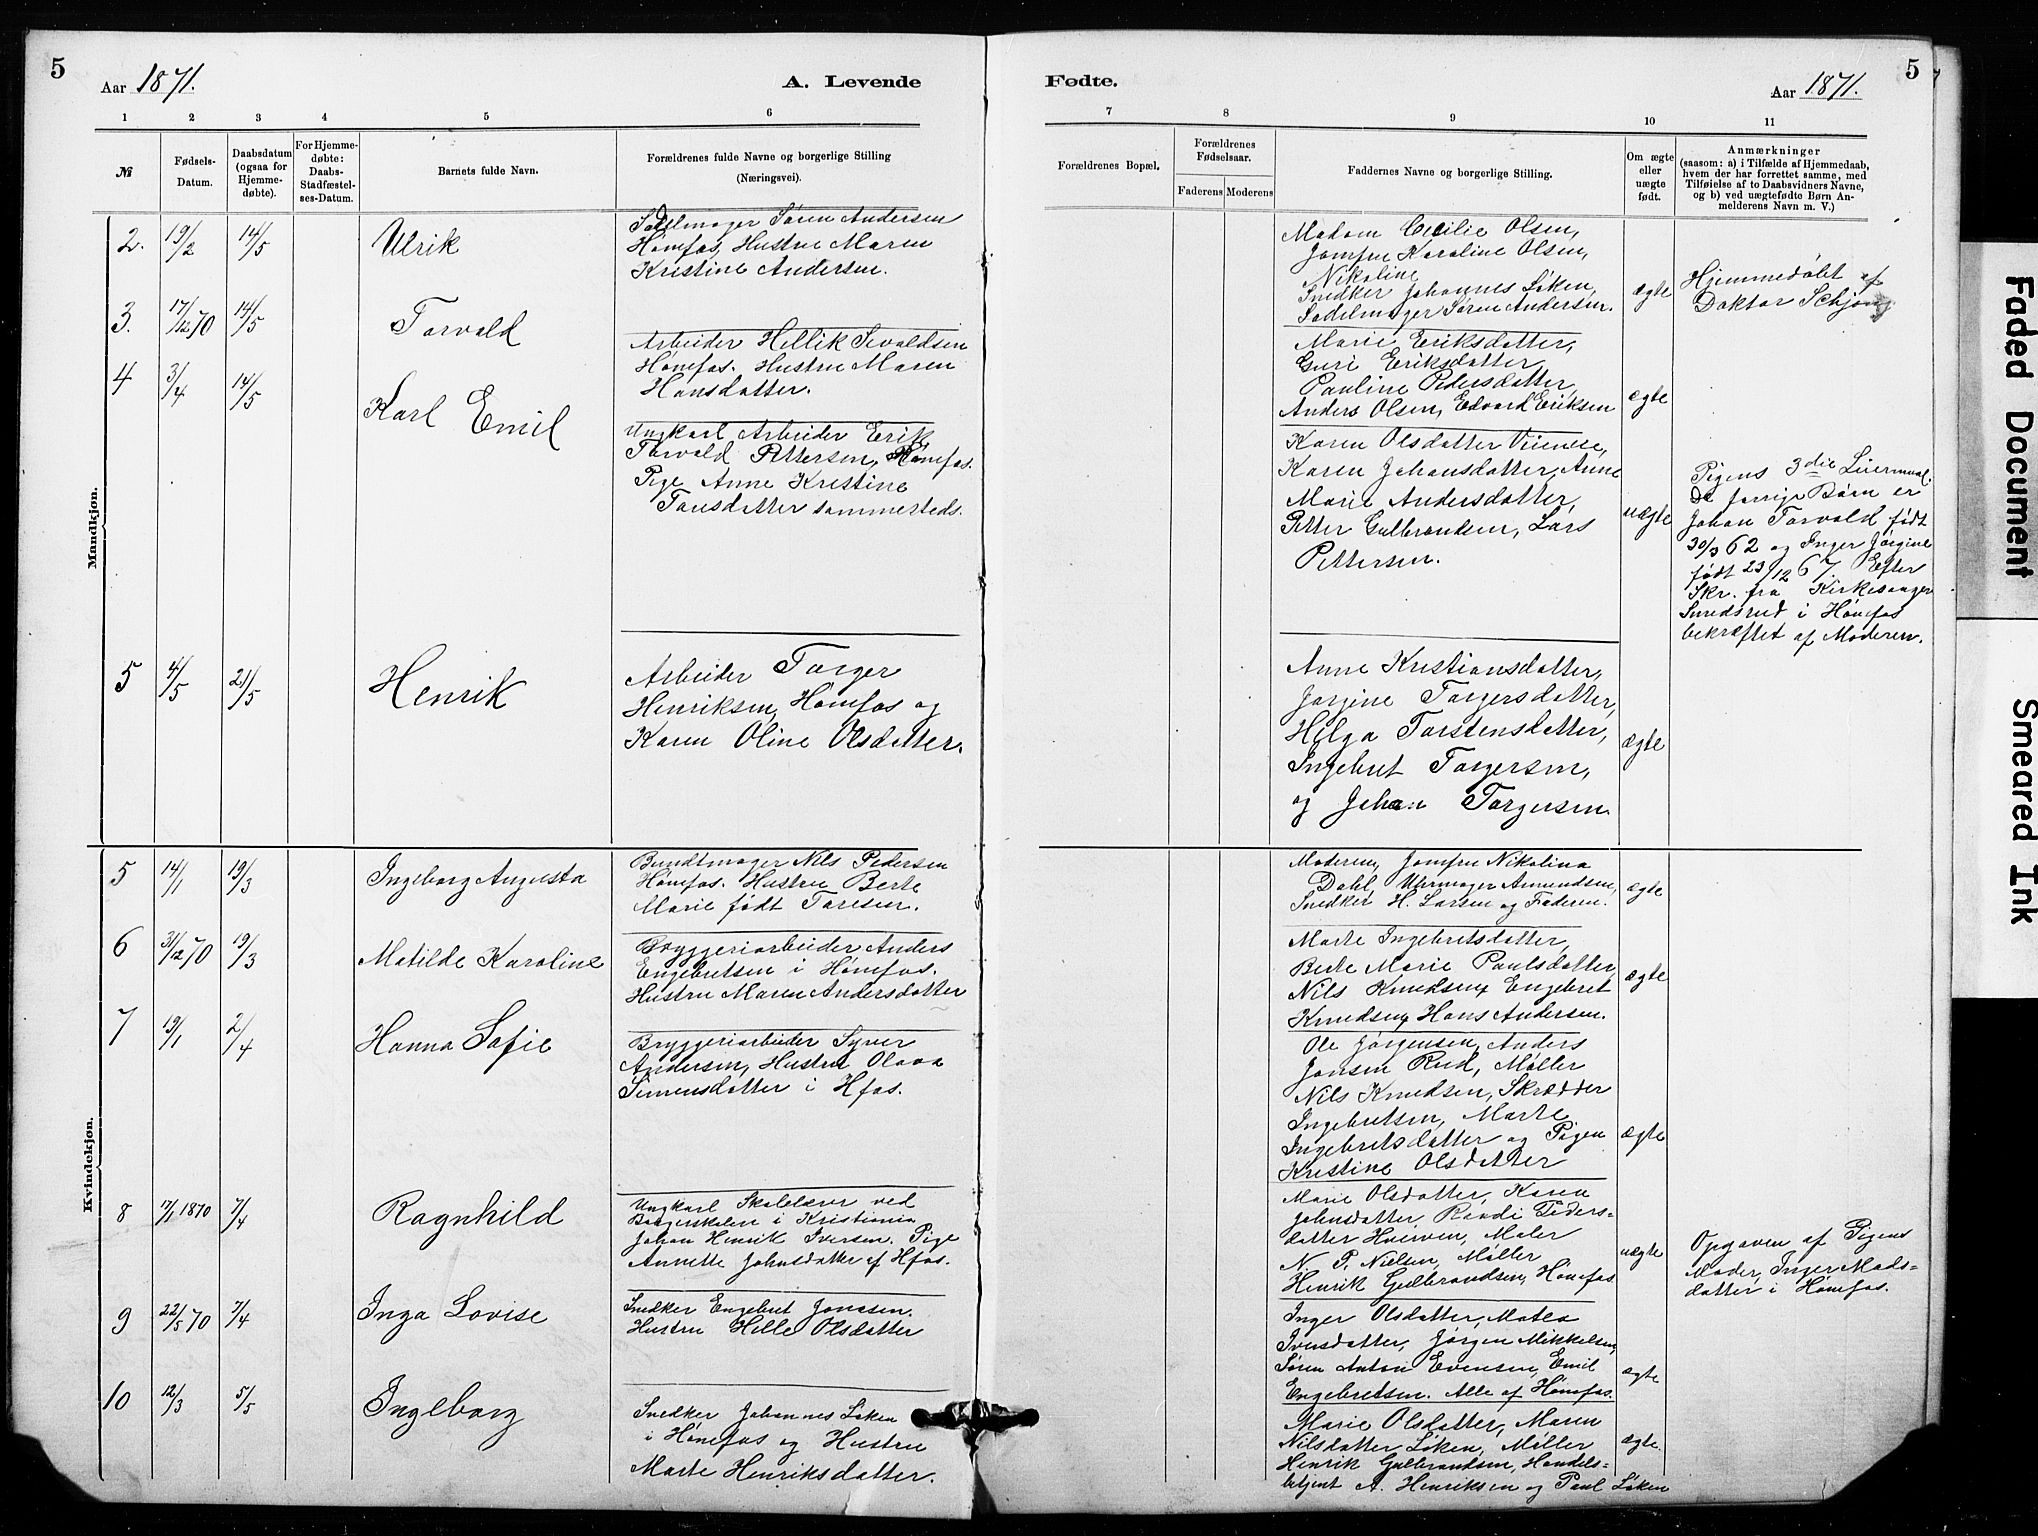 5
Aar 1871.
A. Levende
1 2 3 4 5 6
№
Fødsels-
Datum.
Daabsdatum
(ogsaa for
Hjemme-
døbte).
For Hjemme-
døbte:
Daabs-
Stadfæstel-
ses-Datum.
Barnets fulde Navn.
Forældrenes fulde Navne og borgerlige Stilling
(Næringsvei).
Mandkjøn.
2. 19/2 14/5 Ulrik
Sadelmager Søren Andersen
Hønefos Hustru Maren
Kristine Andersen.
3. 17/12 70 14/5 Torvald
Arbeider Hellik Sivaldsen
Hønefos. Hustru Maren
Hansdatter.
4 3/4 14/5 Karl Emil
Ungkarl Arbeider Erik
Torvald Pettersen, Hønefos.
Pige Anne Kristine
Tansdatter sammesteds.
5 4/5 21/5 Henrik
Arbeider Torger
Henriksen, Hønefos og
Karen Oline Olsdatter.
Kvindekjøn.
5 14/1 19/3 Ingeborg Augusta
Bundtmager Nils Pedersen
Hønefos. Hustru Berte
Marie født Toresen.
6 31/12 70 19/3 Matilde Karoline
Bryggeriarbeider Anders
Engebretsen i Hønefos.
Hustru Maren Andersdatter
7 19/1 2/4 Hanna Sofie
Bryggeriarbeider Syver
Andersen, Hustru Olava
Simensdatter i Hfos.
8 17/1 1870 7/4 Ragnhild
Ungkarl Skolelærer ved
Borgerskolen i Kristiania
Johan Henrik Iversen. Pige
Annette Johnsdatter af Hfos.
9 22/5 70 7/4 Inga Lovise
Snedker Engebret Jonssen.
Hustru Hille Olsdatter
10 12/3 5/5 Ingeborg
Snedker Johannes Løken
i Hønefos og Hustru
Marte Henriksdatter.
Fødte.
Aar 1871.
5
7 8 9 10 11
Forældrenes Bopæl.
Forældrenes
Fødselsaar.
Faderens Moderens
Faddernes Navne og borgerlige Stilling.
Om ægte
eller
uægte
født.
Anmærkninger
(saasom: a) i Tilfælde af Hjemmedaab,
hvem der har forrettet samme, med
Tilføielse af to Daabsvidners Navne,
og b) ved uægtefødte Børn An-
melderens Navn m. V.)
Madam Cecilie Olsen,
Jomfru Karoline Olsen,
Nikoline
Snedker Johannes Løken,
Sadelmager Søren Andersen.
ægte
Hjemmedøbt af
Doktor Schjøng
Marie Eriksdatter,
Guri Eriksdatter,
Pauline Pedersdatter,
Anders Olsen, Edvard Eriksen
ægte
Karen Olsdatter
Karen Johansdatter, Anne
Marie Andersdatter,
Petter Gulbrandsen, Lars
Pettersen.
uægte
Pigens 3die Leiermaal.
De forrige Børn er
Johan Torvald, født
30/3 62 og Inger Jørgine
født 23/12 67. Efter
Skr. fra Kirkesanger
Smedsrud i Hønefos
bekræftet af Moderen.
Anne Kristiansdatter,
Jørgine Torgersdatter,
Helga Torstensdatter,
Ingebret Torgersen,
og Johan Torgersen.
ægte
Moderen, Jomfru Nikolina
Dahl, Uhrmager Amundsen,
Snedker H. Larsen og Faderen.
ægte
Marte Ingebretsdatter,
Berte Marie Paulsdatter,
Nils Knudsen, Engebret
Knudsen, Hans Andersen.
ægte
Ole Jørgensen, Anders
Jonsen Rud, Møller
Nils Knudsen, Skrædder
Ingebretsen, Marte
Ingebretsdatter og Pigen
Kristine Olsdatter
ægte
Marie Olsdatter, Karen
Johnsdatter, Randi Peders-
datter Hverven, Maler
N. P. Nielsen, Møller
Henrik Gulbrandsen, Hønefos.
uægte
Opgaven af Pigens
Moder, Inger Mads-
datter i Hønefos.
Inger Olsdatter, Matea
Iversdatter, Jørgen Mikkelsen,
Søren Anton Evensen, Emil
Engebretsen. Alle af Hønefos.
ægte
Marie Olsdatter, Maren
Nilsdatter Løken, Møller
Henrik Gulbrandsen, Handels-
betjent A. Henriksen og Paul Løken
ægte.
Faded Document
Smeared Ink